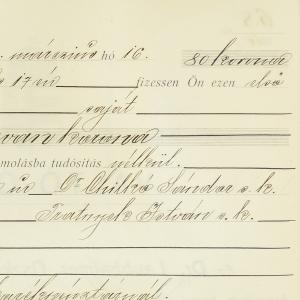 márczius hó 16. 80 korona
17 én fizessen Ön ezen első
saját
van korona
molásba tudósítás nélkül.
úr Dr Chilkó Sándor s. k.
Tratnyek István s. k.